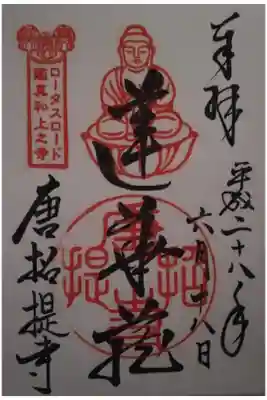 奉拝
平成二十八年
六月十八日
蓮華蔵
ロータスロード
鑑真和上之寺
唐招提寺
唐招提寺